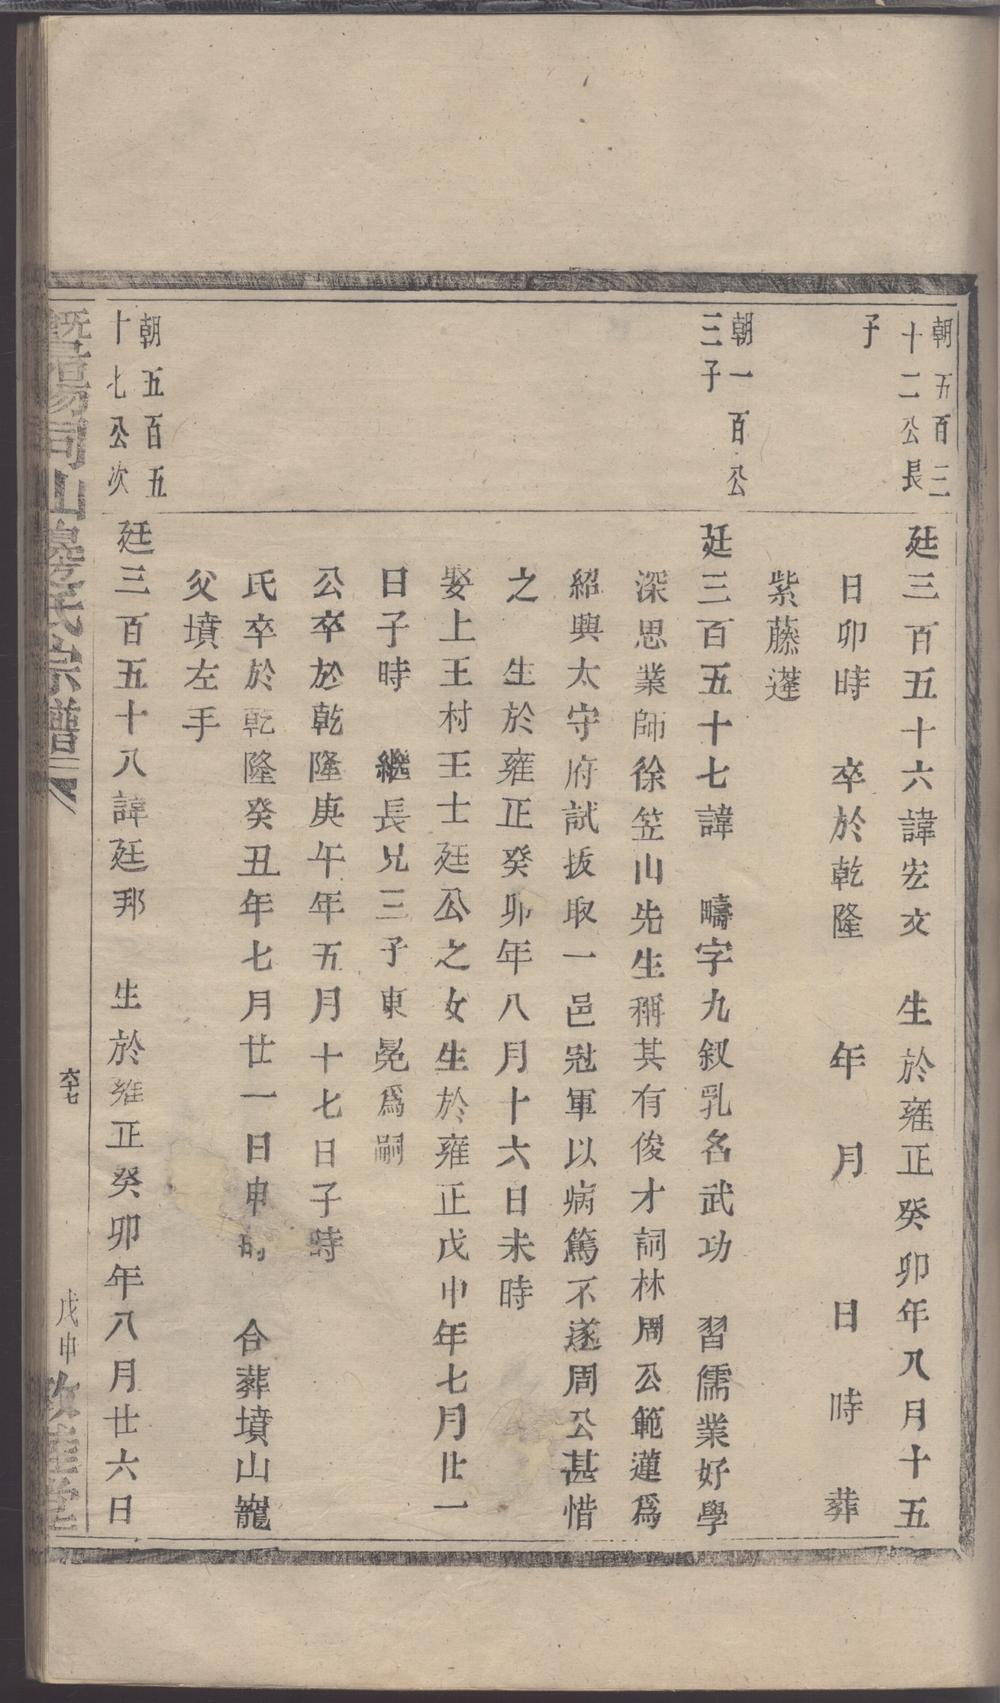 朝五百三
十二公長
子
廷三百五十六諱宏文　生於雍正癸卯年八月十五
日卯時　卒於乾隆　年　月　日　時　葬
紫藤蓬
朝一百公
三子
廷三百五十七諱　疇字九叙乳名武功　習儒業好學
深思業師徐笠山先生稱其有俊才詞林周公範蓮為
紹興太守府試拔取一邑冠軍以病篤不遂周公甚惜
之　生於雍正癸卯年八月十六日未時
娶上王村王士廷公之女生於雍正戊申年七月廿一
日子時　繼長兄三子東晃為嗣
公卒於乾隆庚午年五月十七日子時
氏卒於乾隆癸丑年七月廿一日申時　合葬墳山寵
父墳左手
朝五百五
十七公次
廷三百五十八諱廷邦　生於雍正癸卯年八月廿六日
暨陽同山邊氏宗譜
六十七
戊申敦睦堂